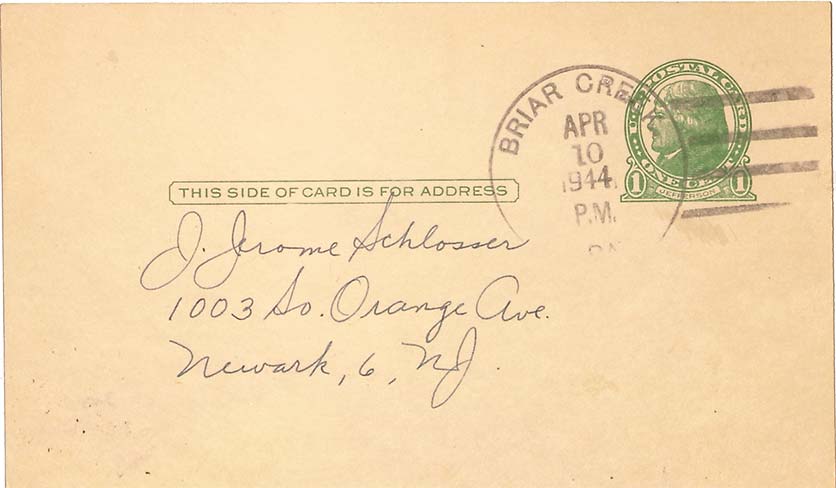 BRIAR CREEK
APR
10
1944
P.M.
PA
U.S. POSTAL CARD
ONE CENT
1 JEFFERSON 1
THIS SIDE OF CARD IS FOR ADDRESS
J. Jerome Schlosser
1003 So. Orange Ave.
Newark, 6, NJ.